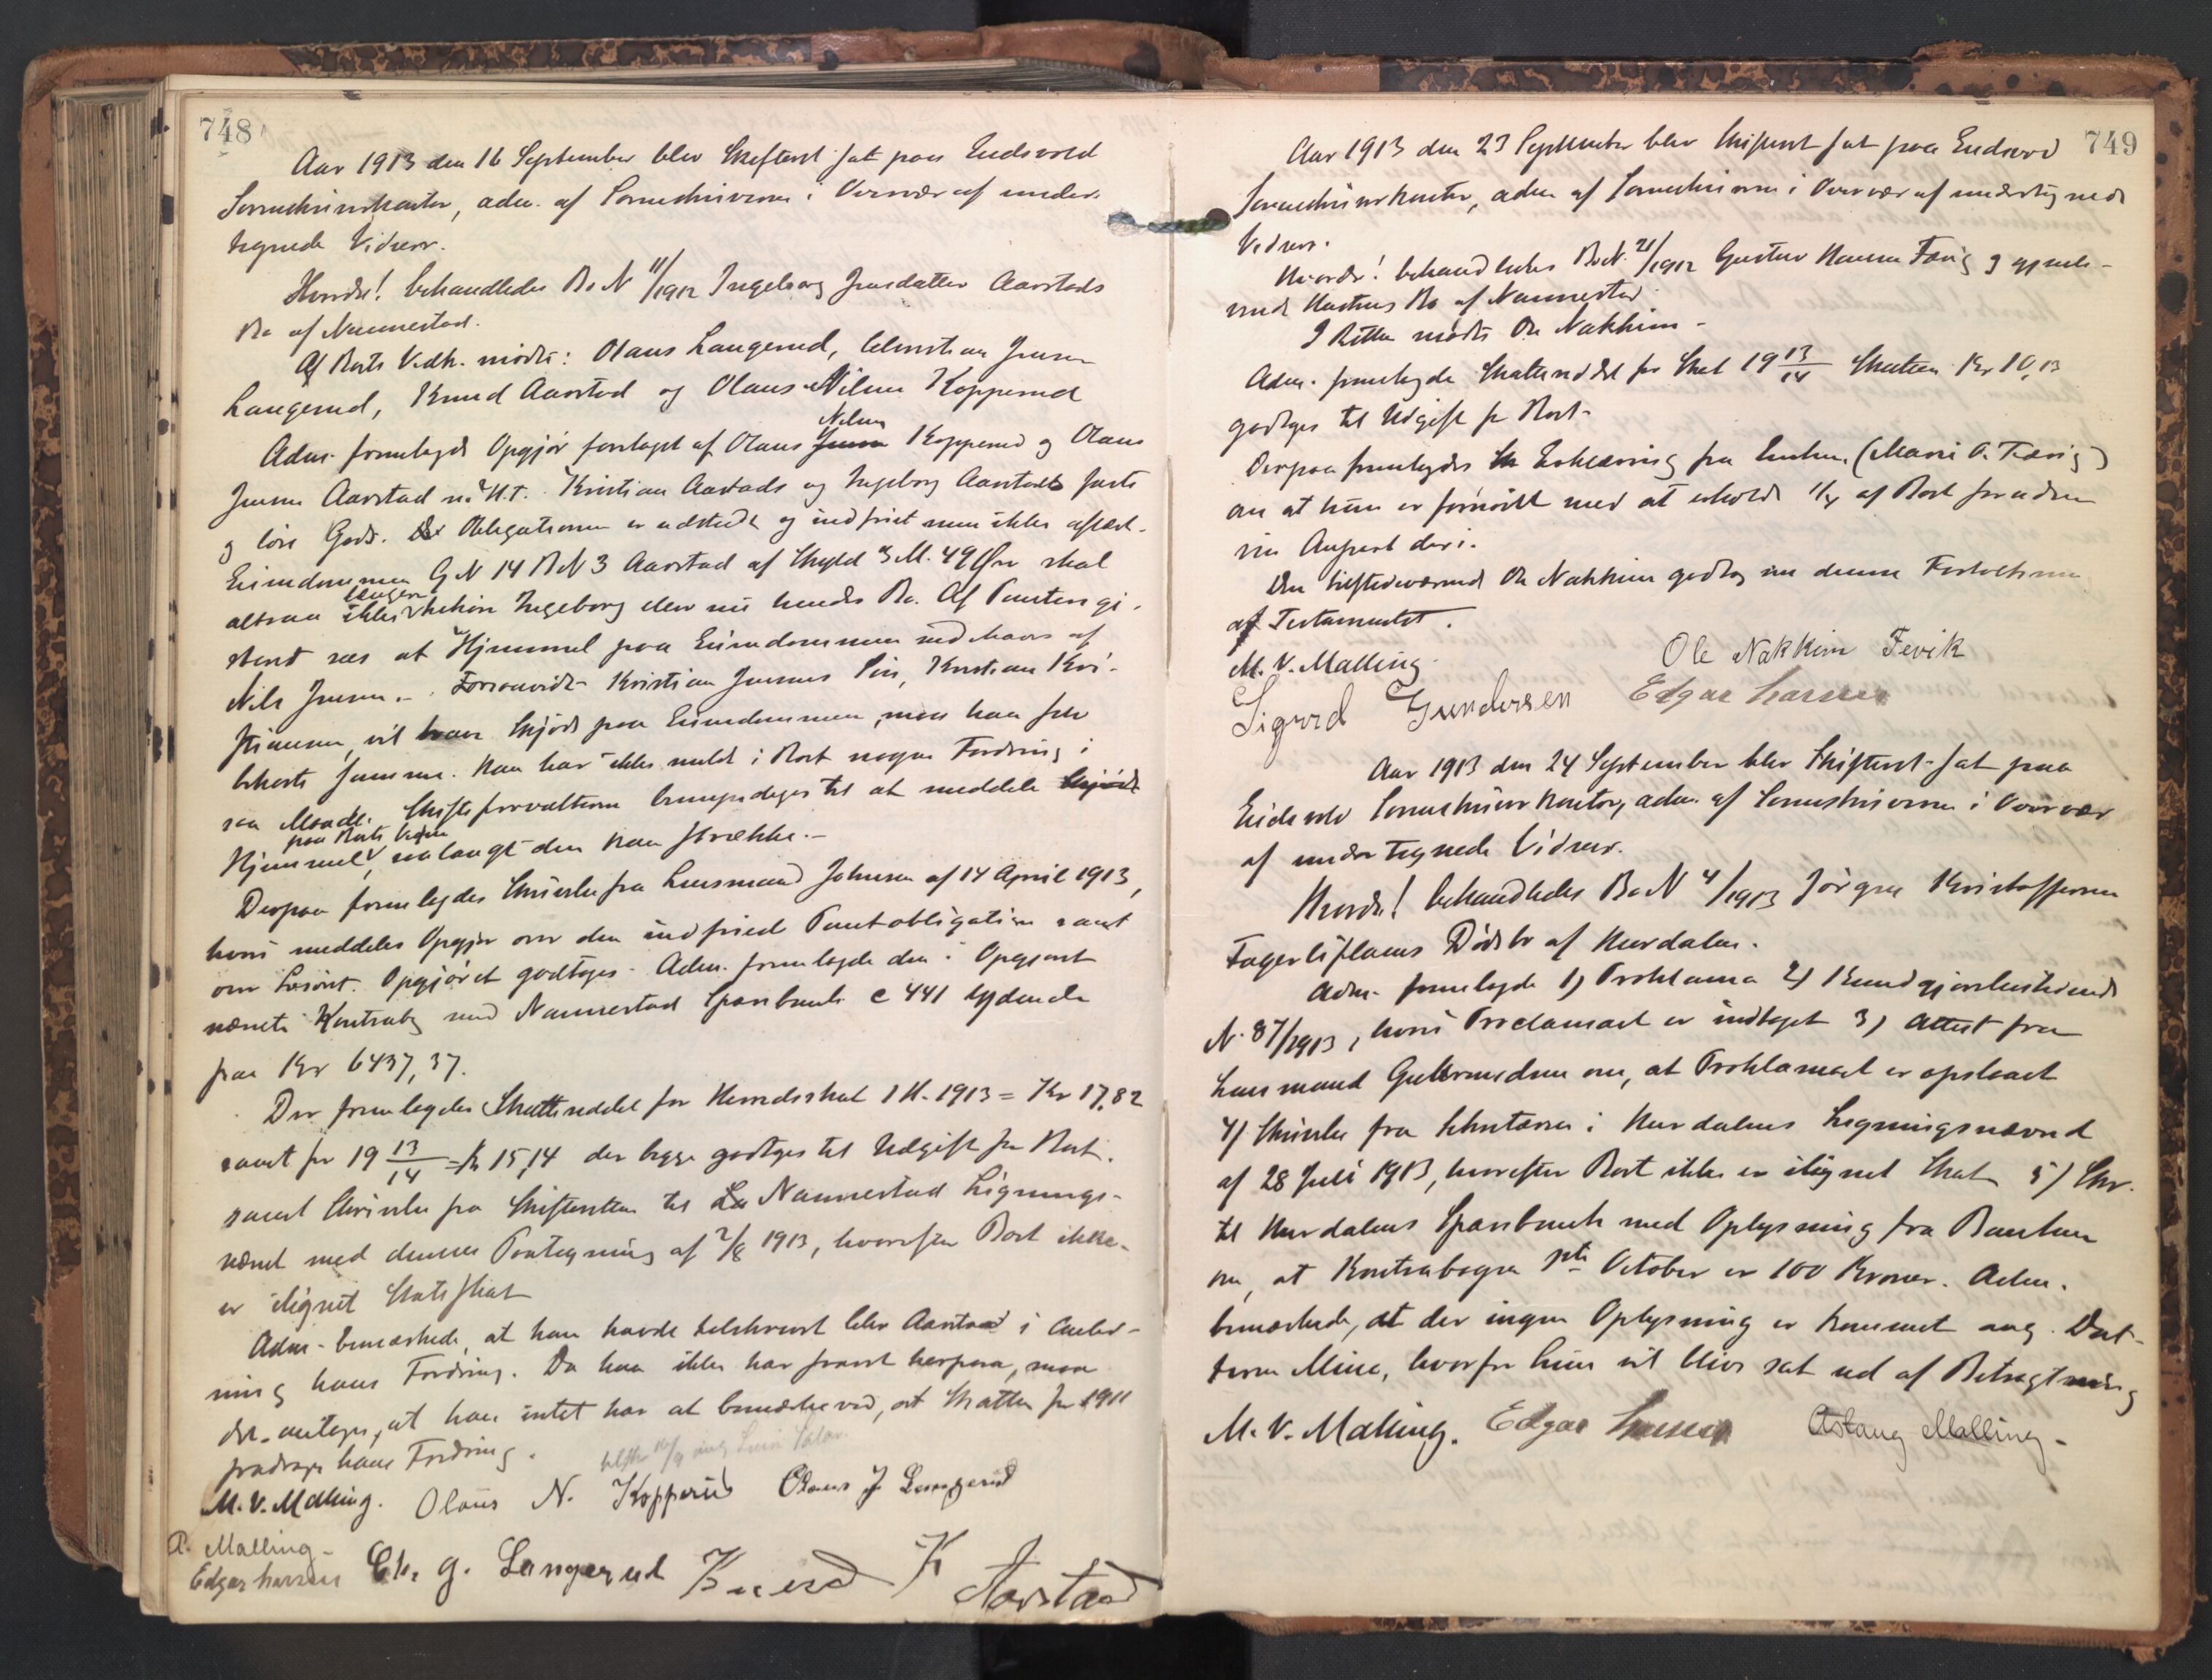 748
Aar 1913 den 16 September blev Skifteret sat paa Eidsvold
Sorenskriverkontor, adm. af Sorenskriveren i Overvær af under-
tegnede Vidner.
Hvorda! behandledes Bo N 11/1912 Ingeborg Jensdatter Aarstads
Bo af Nannestad.
Af Boets Vedk. mødte: Olaus Langerud, Christian Jensen
Langerud, Knud Aarstad og Olaus Nilsen Kopperud
Adm. fremlagde Opgjør foretaget af Olaus Jensen Nilsen Kopperud og Olaus
Jensen Aarstad Kristian Aastads og Ingeborg Aarstads faste
og løse Gods. Obligationen er udstedt og indfriet men ikke aflæst.
Eiendommen G N 14 B N 3 Aarstad af Skyld 3 M. 49 Øre skal
altsaa ikke længer behøre Ingeborg eller nu hendes Bo. Af Pantere gi-
steret sees at Hjemmel paa Eiendommen indehaves af
Nils Jensen. Forsaavidt Kristian Jensens Søn, Kristian Kri-
stiansen, vil have Skjøde paa Eiendommen, maa han selv
bekoste samme. Han har ikke meldt i Boet nogen Fordring i
saa Maade. Skifteforvalteren bemyndiges til at meddele Skjøde
Hjemmel paa Boets Vegne, saalangt den kan strække.-
Derpaa fremlagdes Skrivelse fra Lensmand Johnsen af 14 April 1913,
hvori meddeles Opgjør over den indfriede Pantobligation samt
over Løsøret. Opgjøret godtoges. Adm. fremlagde den i Opgjøret
nævnte Kontrabog med Nannestad Sparebank C 441 lydende
paa Kr 6437,37.
Der fremlagdes Skatteseddel for Herredsskat 1 H. 1913 = Kr 17,82
samt for 19 13/14 = Kr 15,14 der begge godtoges til Udgift for Boet.
samt Skrivelse fra Skifteretten til Nannestad Ligningsnævnd
med dennes Paategning af 2/8 1913, hvorefter Boet ikke
er ilignet Statsskat
Adm. bemærkede, at han havde tilskrevet Aarstad i Anled-
ning hans Fordring. Da han ikke har svaret herpaa, maa
det antages, at han intet har at bemærke ved, at Skatten for 1911
fradrages hans Fordring.
M. V. Malling. Olaus N. Kopperud Olaus J Langerud
A. Malling-
Edgar Larsen Ch. J. Langerud Knud K Aarstad
749
Aar 1913 den 23 September blev Skifteret sat paa Eidsvold
Sorenskriverkontor, adm af Sorenskriveren i Overvær af undertegnede
Vidner.
Hvorda! behandledes Bo N. 21/1912 Gustav Hansen Fævig og gjenle-
vende Hustrus Bo af Nannestad.
I Retten mødte Ole Nakkim -
Adm. fremlagde Skatteseddel for Skat 19 13/14 Skatten Kr 10,13
godtoges til Udgift for Boet-
Derpaa fremlagdes Erklæring fra Enken (Marie O. Fævig)
om at hun er fornøiet med at erholde 1/4 af Boet foruden
sin Anpart deri.
Den tilstedeværende Ole Nakkim godtog nu denne Fortolkning
af Testamentet.
M. V. Malling. Ole Nakkim Fevik
Sigurd Gundersen Edgar Larsen
Aar 1913 den 24 September blev Skifteret sat paa
Eidsvold Sorenskriverkontor, adm. af Sorenskriveren i Overvær
af undertegnede Vidner.
Hvorda! behandledes Bo N 4/1913 Jørgen Kristoffersen
Fagerlisplads Dødsbo af Hurdalen.
Adm. fremlagde 1) Proklama 2) Kundgjørelsestidende
N. 87/1913, hvori Proclamaet er indtaget 3) Attest fra
Lensmand Gulbrandsen om, at Proklamaet er opslaaet
4) Skrivelse fra Sekretæren i Hurdalens Ligningsnævnd
af 28 Juli 1913, hvorefter Boet ikke er ilignet Skat 5) Skr.
til Hurdalens Sparebank med Oplysning fra Banken
om, at Kontrabogen pr October er 100 Kroner. Adm.
bemærkede, at der ingen Oplysning er kommet ang. Dat-
teren Mina, hvorfor hun vil blive sat ud af Betragtning
M. V. Malling. Edgar Larsen Aslaug Malling-